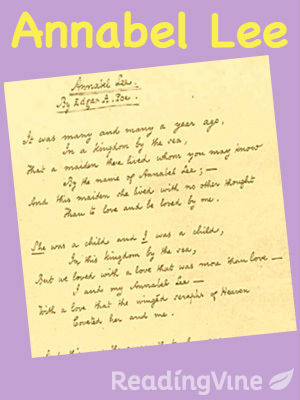 Annabel Lee
Annabel Lee.
By Edgar A. Poe.
It was many and many a year ago,
In a kingdom by the sea,
That a maiden there lived whom you may know
By the name of Annabel Lee; —
And this maiden she lived with no other thought
Than to love and be loved by me.
She was a child and I was a child,
In this kingdom by the sea,
But we loved with a love that was more than love —
I and my Annabel Lee —
With a love that the wingéd seraphs of Heaven
Coveted her and me.
ReadingVine